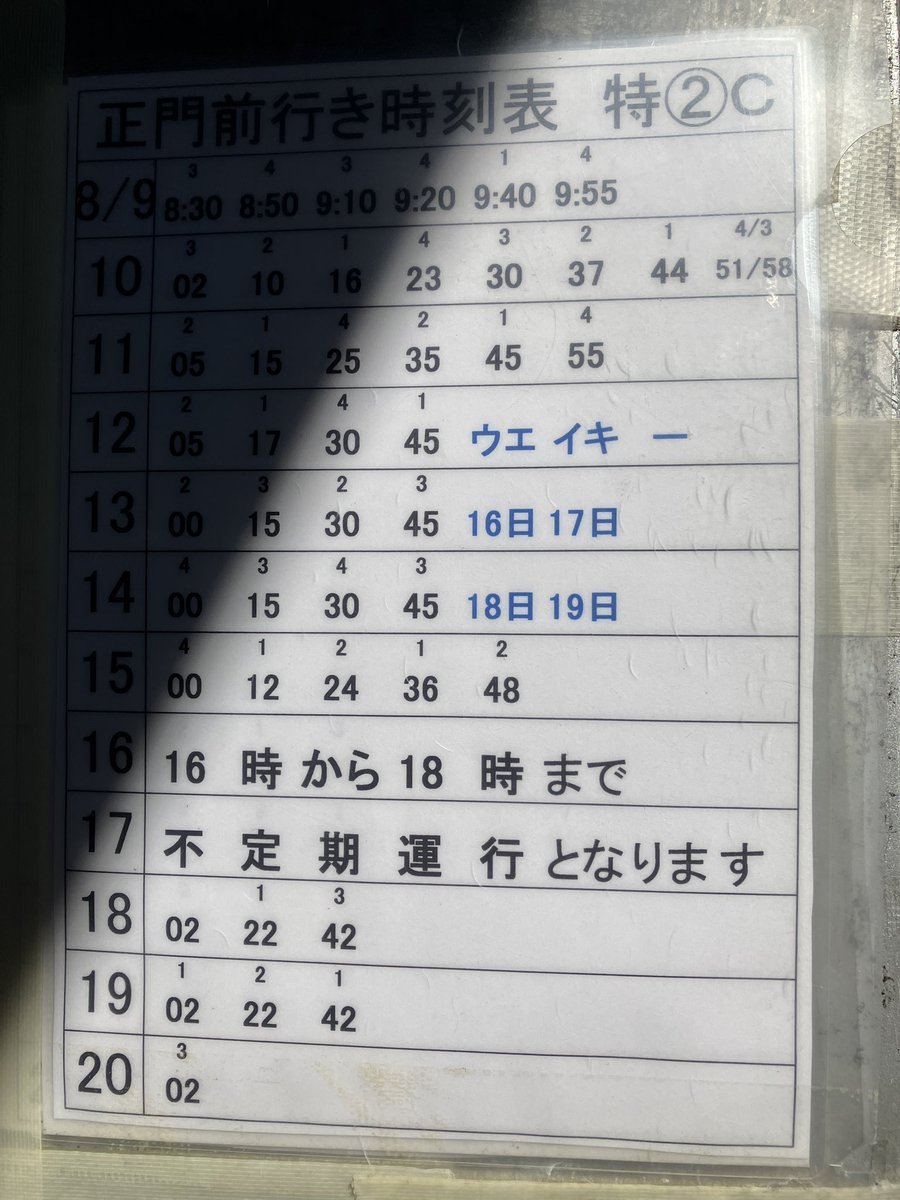 正門前行き時刻表 特②C
3 4 3 4 1 4
8/9 8:30 8:50 9:10 9:20 9:40 9:55
3 2 1 4 3 2 1 4/3
10 02 10 16 23 30 37 44 51/58
2 1 4 2 1 4
11 05 15 25 35 45 55
2 1 4 1
12 05 17 30 45 ウエ イキ ー
2 3 2 3
13 00 15 30 45 16日 17日
4 3 4 3
14 00 15 30 45 18日 19日
4 1 2 1 2
15 00 12 24 36 48
16 16 時 から 18 時 まで
17 不 定 期 運 行 となります
1 3
18 02 22 42
1 2 1
19 02 22 42
3
20 02